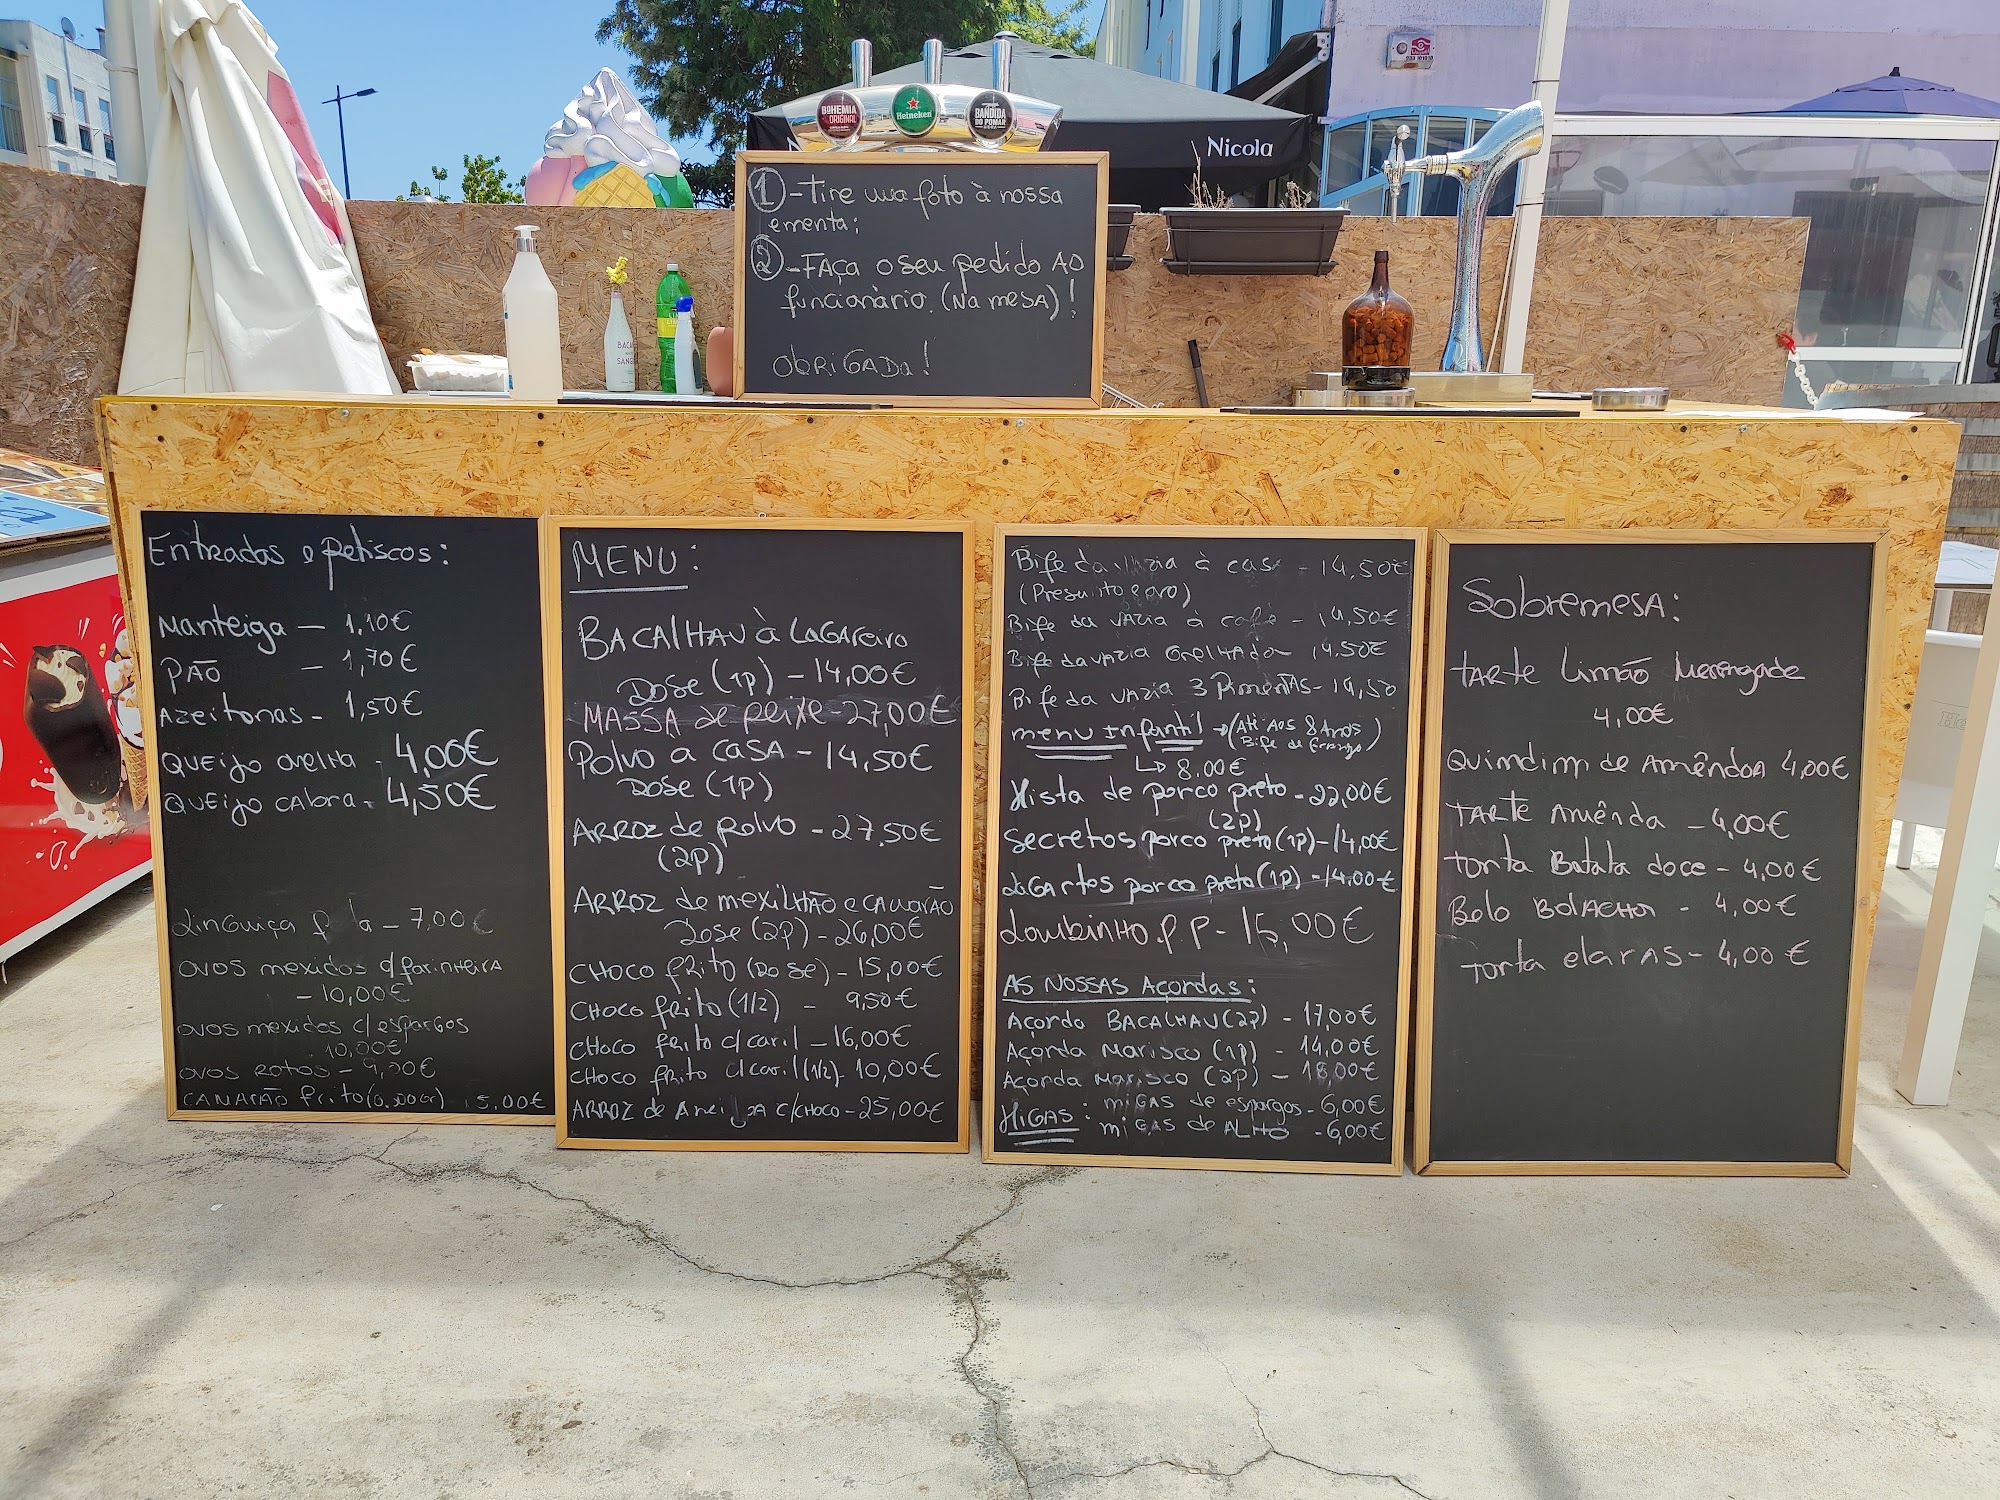 BOHEMIA
ORIGINAL
Heineken
BANDIDA
DO POMAR
Nicola
1 - Tire uma foto à nossa
ementa;
2 - FAÇA o seu pedido AO
funcionário. (NA mesa)!
OBRIGADA!
Entradas e petiscos:
Manteiga — 1,10€
PÃO — 1,70€
Azeitonas - 1,50€
QUEIJO OVELHA - 4,00€
QUEIJO CABRA - 4,50€
LINGUIÇA — 7,00€
OVOS mexidos c/farinheira
- 10,00€
OVOS mexidos c/espargos
10,00€
OVOS ROTOS - 9,20€
CAMARÃO frito 15,00€
MENU:
BACALHAU à LAGAREIRO
DOSE (1p) - 14,00€
MASSA de peixe - 27,00€
POLVO A CASA - 14,50€
DOSE (1p)
ARROZ de polvo - 27,50€
(2p)
ARROZ de mexilhão e CAMARÃO
DOSE (2p) - 26,00€
CHOCO frito (DOSE) - 15,00€
CHOCO frito (1/2) - 9,50€
CHOCO frito c/caril - 16,00€
CHOCO frito c/caril (1/2) - 10,00€
ARROZ de c/CHOCO - 25,00€
Bife da VAZIA à casa - 14,50€
(Presunto e ovo)
Bife da VAZIA à café - 14,50€
Bife da VAZIA GRELHADA - 14,50€
Bife da VAZIA 3 PIMENTAS - 14,50
menu Infantil → (Até AOS 8 Anos
Bife de Frango)
↳ 8,00€
Mista de porco preto - 22,00€
(2p)
Secretos porco preto (1p) - 14,00€
LAGARTOS porco preto (1p) - 14,00€
LOMBINHO P.P - 15,00€
AS NOSSAS Açordas:
Açorda BACALHAU (2p) - 17,00€
Açorda MARISCO (1p) - 14,00€
Açorda MARISCO (2p) — 18,00€
MIGAS: MIGAS de espargos - 6,00€
MIGAS de ALHO - 6,00€
Sobremesa:
TARTE Limão Merengade
4,00€
Quindim de AMÊNDOA 4,00€
TARTE Amênda - 4,00€
TORTA Batata doce - 4,00€
Bolo BOLACHA - 4,00€
TORTA claras - 4,00€